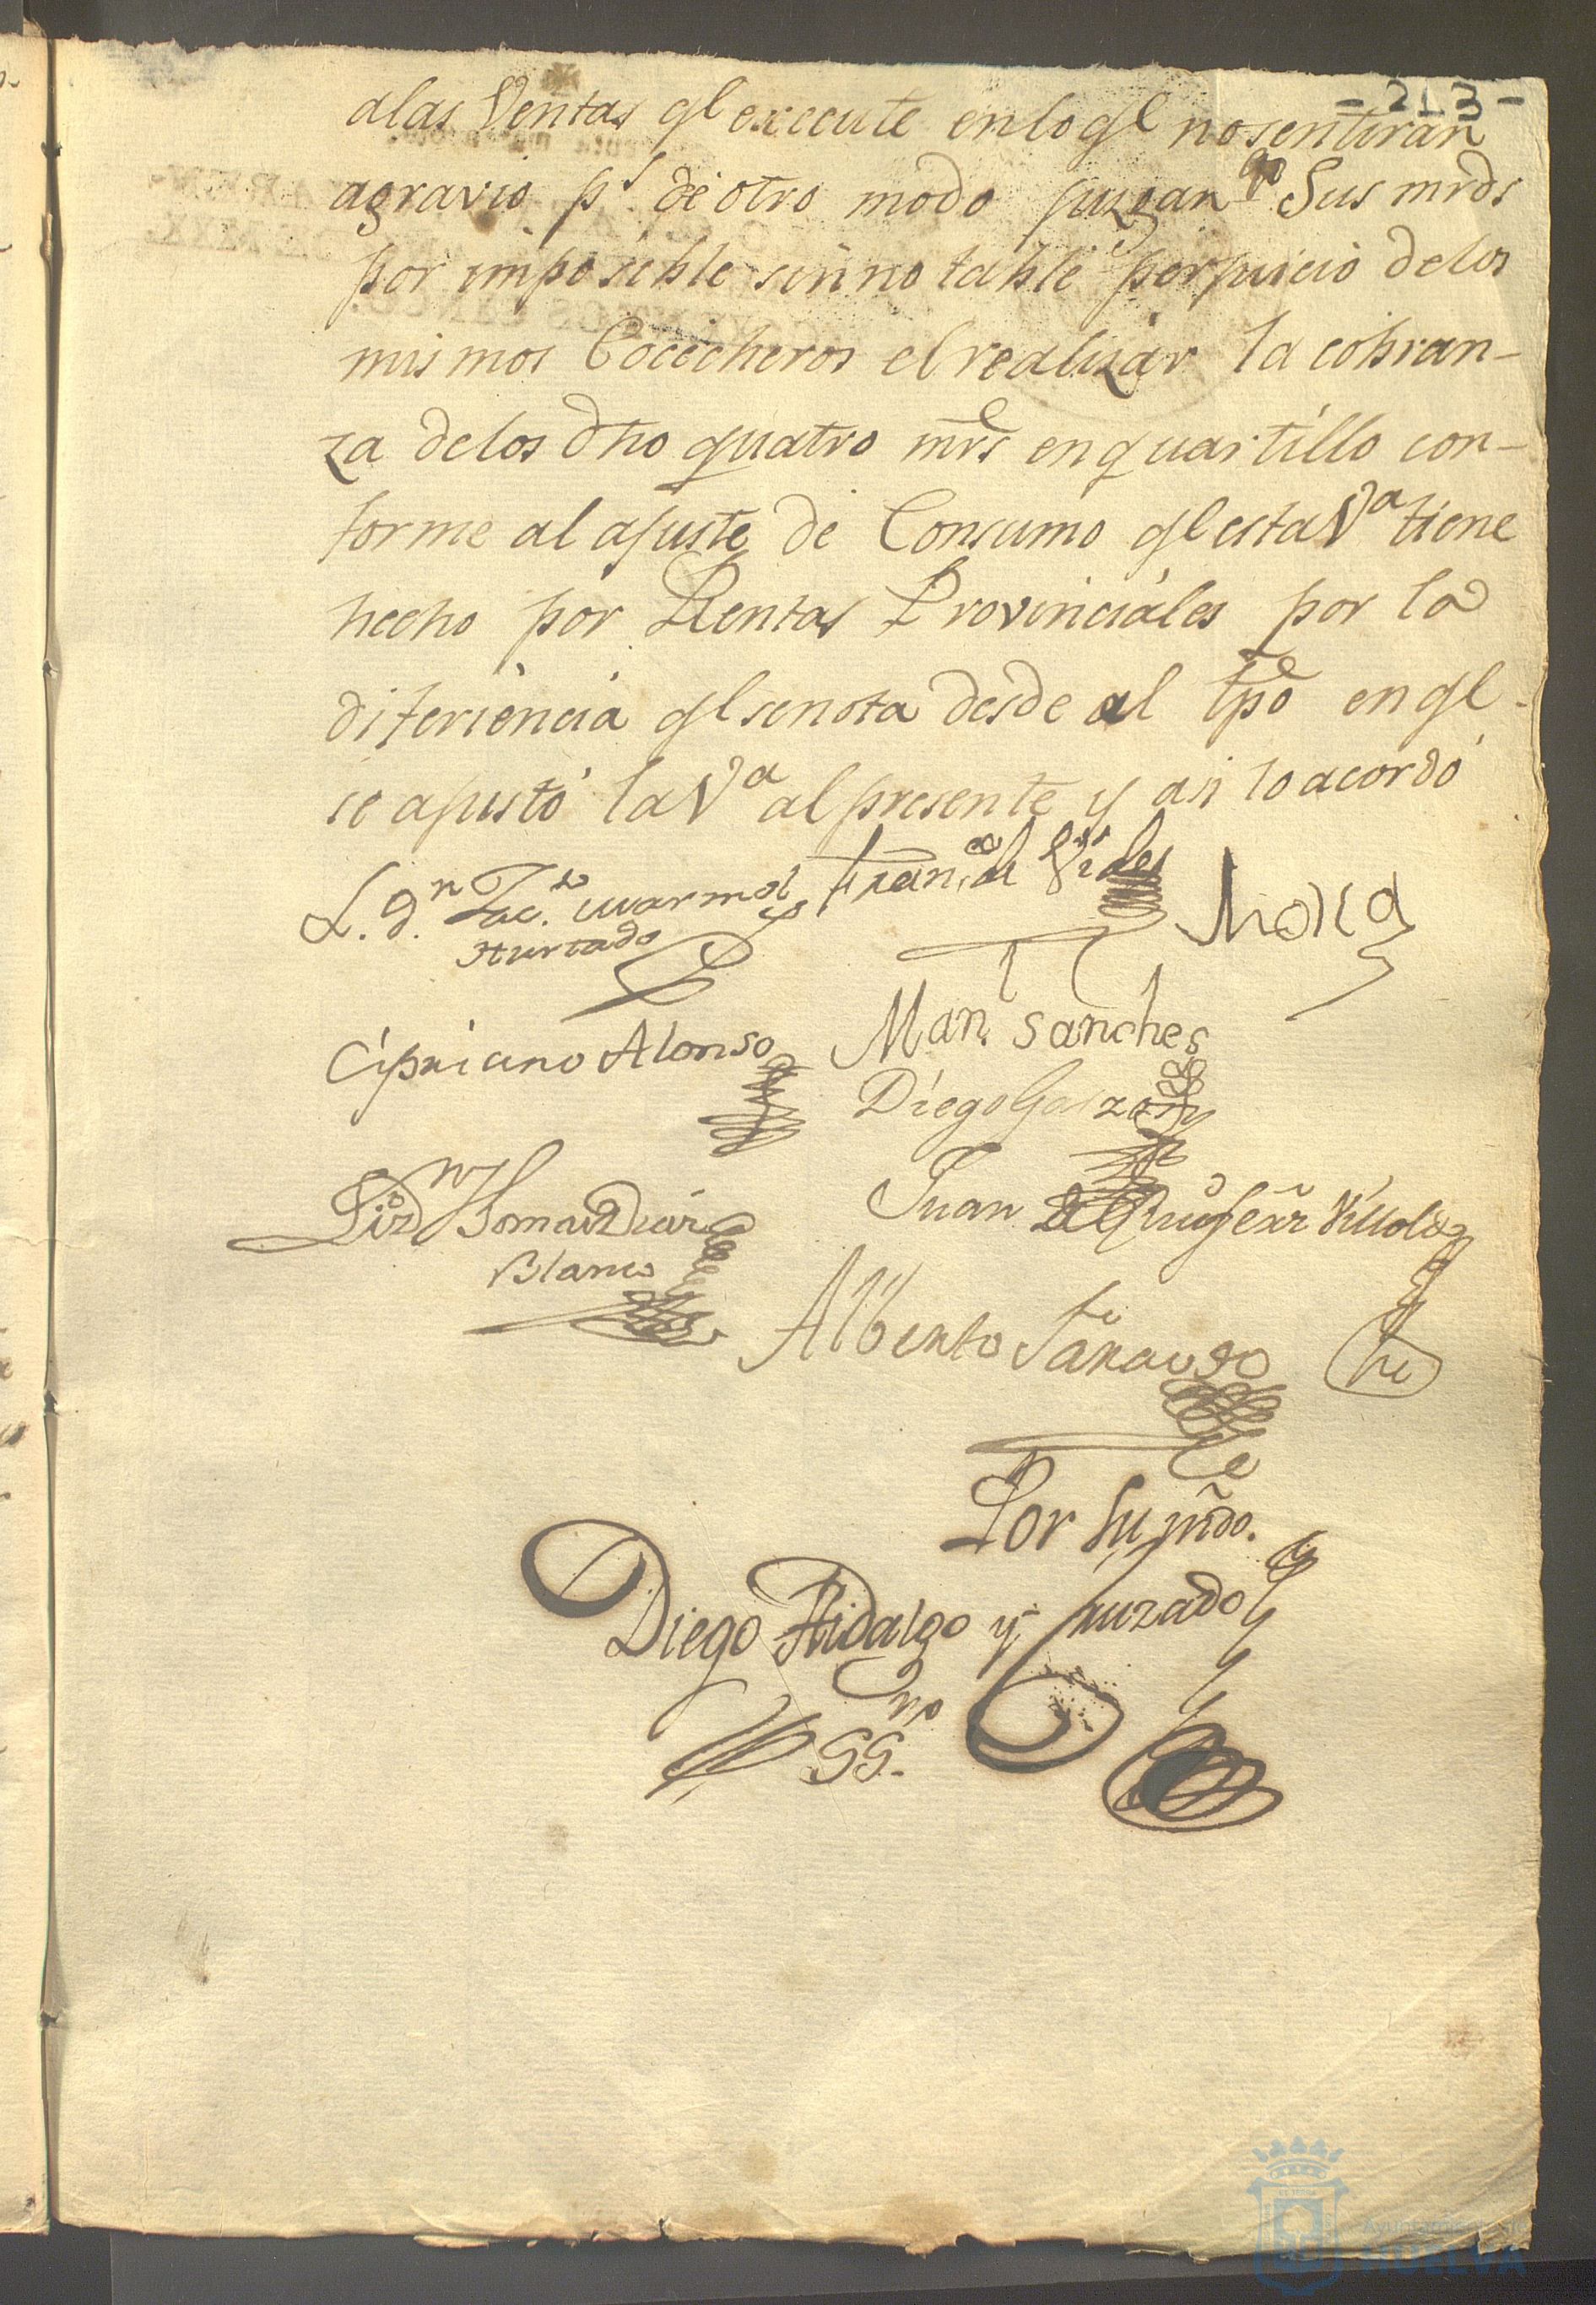 - 213 -
alas Ventas ql execute enloql nosentiran
agravio ps de otro modo juzgan qe Sus mrds
por imposible sin notable perjuicio delos
mismos Cocecheros el realizar la cobran-
za delos dho quatro mrs enquartillo con-
forme al ajuste de Consumo ql esta Va tiene
hecho por Rentas Provinciales por la
diferiencia ql senota desde al tpo en ql
se ajustó la Va al presente y asi lo acordó
L. dn marmol y
Hurtado
Franco de Vides
Mora
Cipriano Alonso
Man. Sanches
Diego Garzon
Tomas Diaz
Blanco
Juan
Alberto
Por su mdo.
Diego Hidalgo y
SSno
Ayuntamiento de
HUELVA